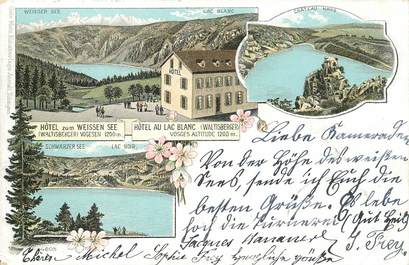 WEISSER SEE
LAC BLANC
CHATEAU HANS
HOTEL
HÔTEL zum WEISSEN SEE
(WALTISBERGER) VOGESEN 1200 m.
HÔTEL AU LAC BLANC (WALTISBERGER)
VOSGES ALTITUDE 1200 m.
SCHWARZER SEE
LAC NOIR
Liebe Kameraden
Von der Höhe des weißen
Sees, sende ich Euch die
besten Grüße. Es lebe
hoch die Turnerei! Gut Heil!
Jacques
J. Frey
Michel Sophie Frey